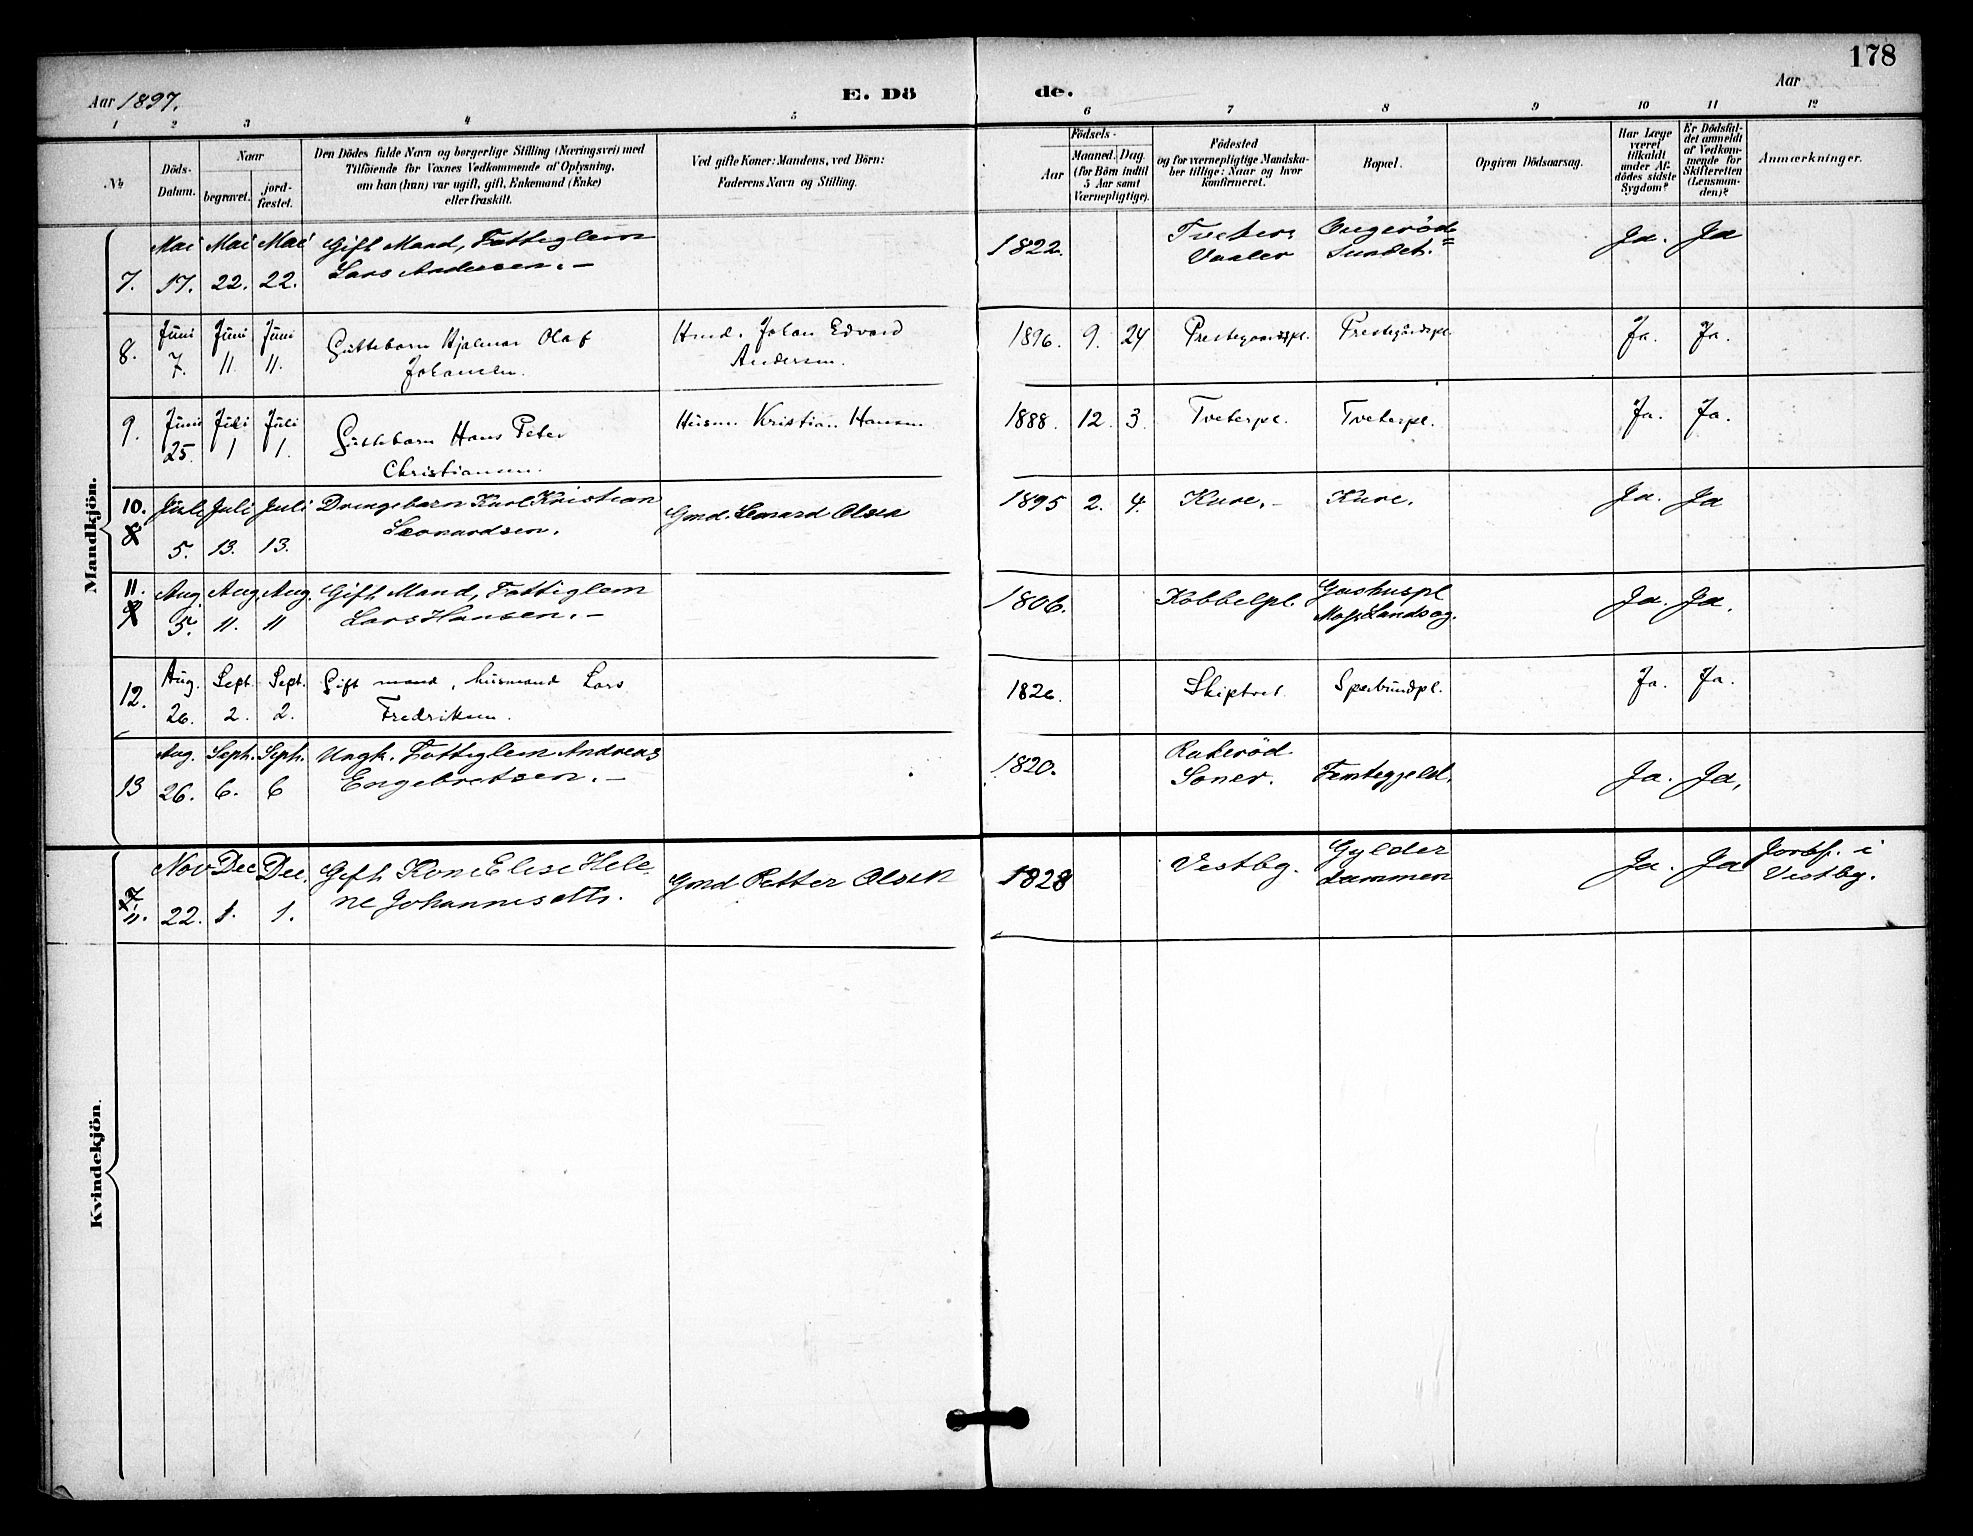 178
Aar 1897.
E. Dö
de.
Aar
1 2 3 4 5 6 7 8 9 10 11 12
№
Döds-
Datum.
Naar
begravet.
jord-
fæstet.
Den Dödes fulde Navn og borgerlige Stilling (Næringsvei) med
Tilföiende for Voxnes Vedkommende af Oplysning,
om han (hun) var ugift, gift, Enkemand (Enke)
eller fraskilt.
Ved gifte Koner: Mandens, ved Börn:
Faderens Navn og Stilling.
Födsels-
Aar
Maaned. Dag.
(for Börn indtil
5 Aar samt
Værnepligtige).
Födested
og for værnepligtige Mandska-
ber tillige: Naar og hvor
konfirmeret.
Bopæl.
Opgiven Dödsaarsag.
Har Læge
været
tilkaldt
under Af-
dödes sidste
Sygdom?
Er Dödsfal-
det anmeldt
af Vedkom-
mende for
Skifteretten
(Lensman-
den)?
Anmærkninger.
Mandkjön.
7. Mai 17. Mai 22. Mai 22. Gift Mand, Fattiglem
Lars Andersen. 1822. Tveter
Vaaler
Sundet. Ja. Ja
8. Juni 7. Juni 11. Juni 11. Guttebarn Hjalmar Olaf
Johansen. Husd. Johan Edvard
Andersen. 1896. 9. 24 Prestegaardspl. Prestegårdspl. Ja. Ja.
9. Juni 25. Juli 1 Juli 1. Guttebarn Hans Peter
Christiansen. Husm. Kristian Hansen 1888. 12. 3. Tveterpl. Tveterpl. Ja. Ja.
10. Juli 5. Juli 13. Juli 13. Drengebarn Karl Kristian
Leonardsen. Gmd. Leonard Olsen 1895 2. 4. Kure. Kure. Ja. Ja
11. Aug. 5. Aug. 11. Aug. 11 Gift Mand, Fattiglem
Lars Hansen. 1806. Kobbelpl. Gashuspl
Moss Landsog. Ja. Ja.
12. Aug. 26. Sept. 2. Sept. 2. Gift mand, husmand Lars
Fredriksen. 1826. Skiptvet. Sperbundpl. Ja. Ja.
13 Aug. 26. Sept. 6. Sept. 6 Ungk. Fattiglem Andreas
Engebretsen. 1820. Rakerød
Soner. Femtegjeld. Ja. Ja,
Kvindekjön.
7. 11. Nov 22. Dec 1. Dec. 1. Gift Kone Elise Hele
ne Johannesdtr. Gmd Petter Olsen 1828 Vestby. Gylder
dammen Ja. Ja Jordf. i
Vestby.